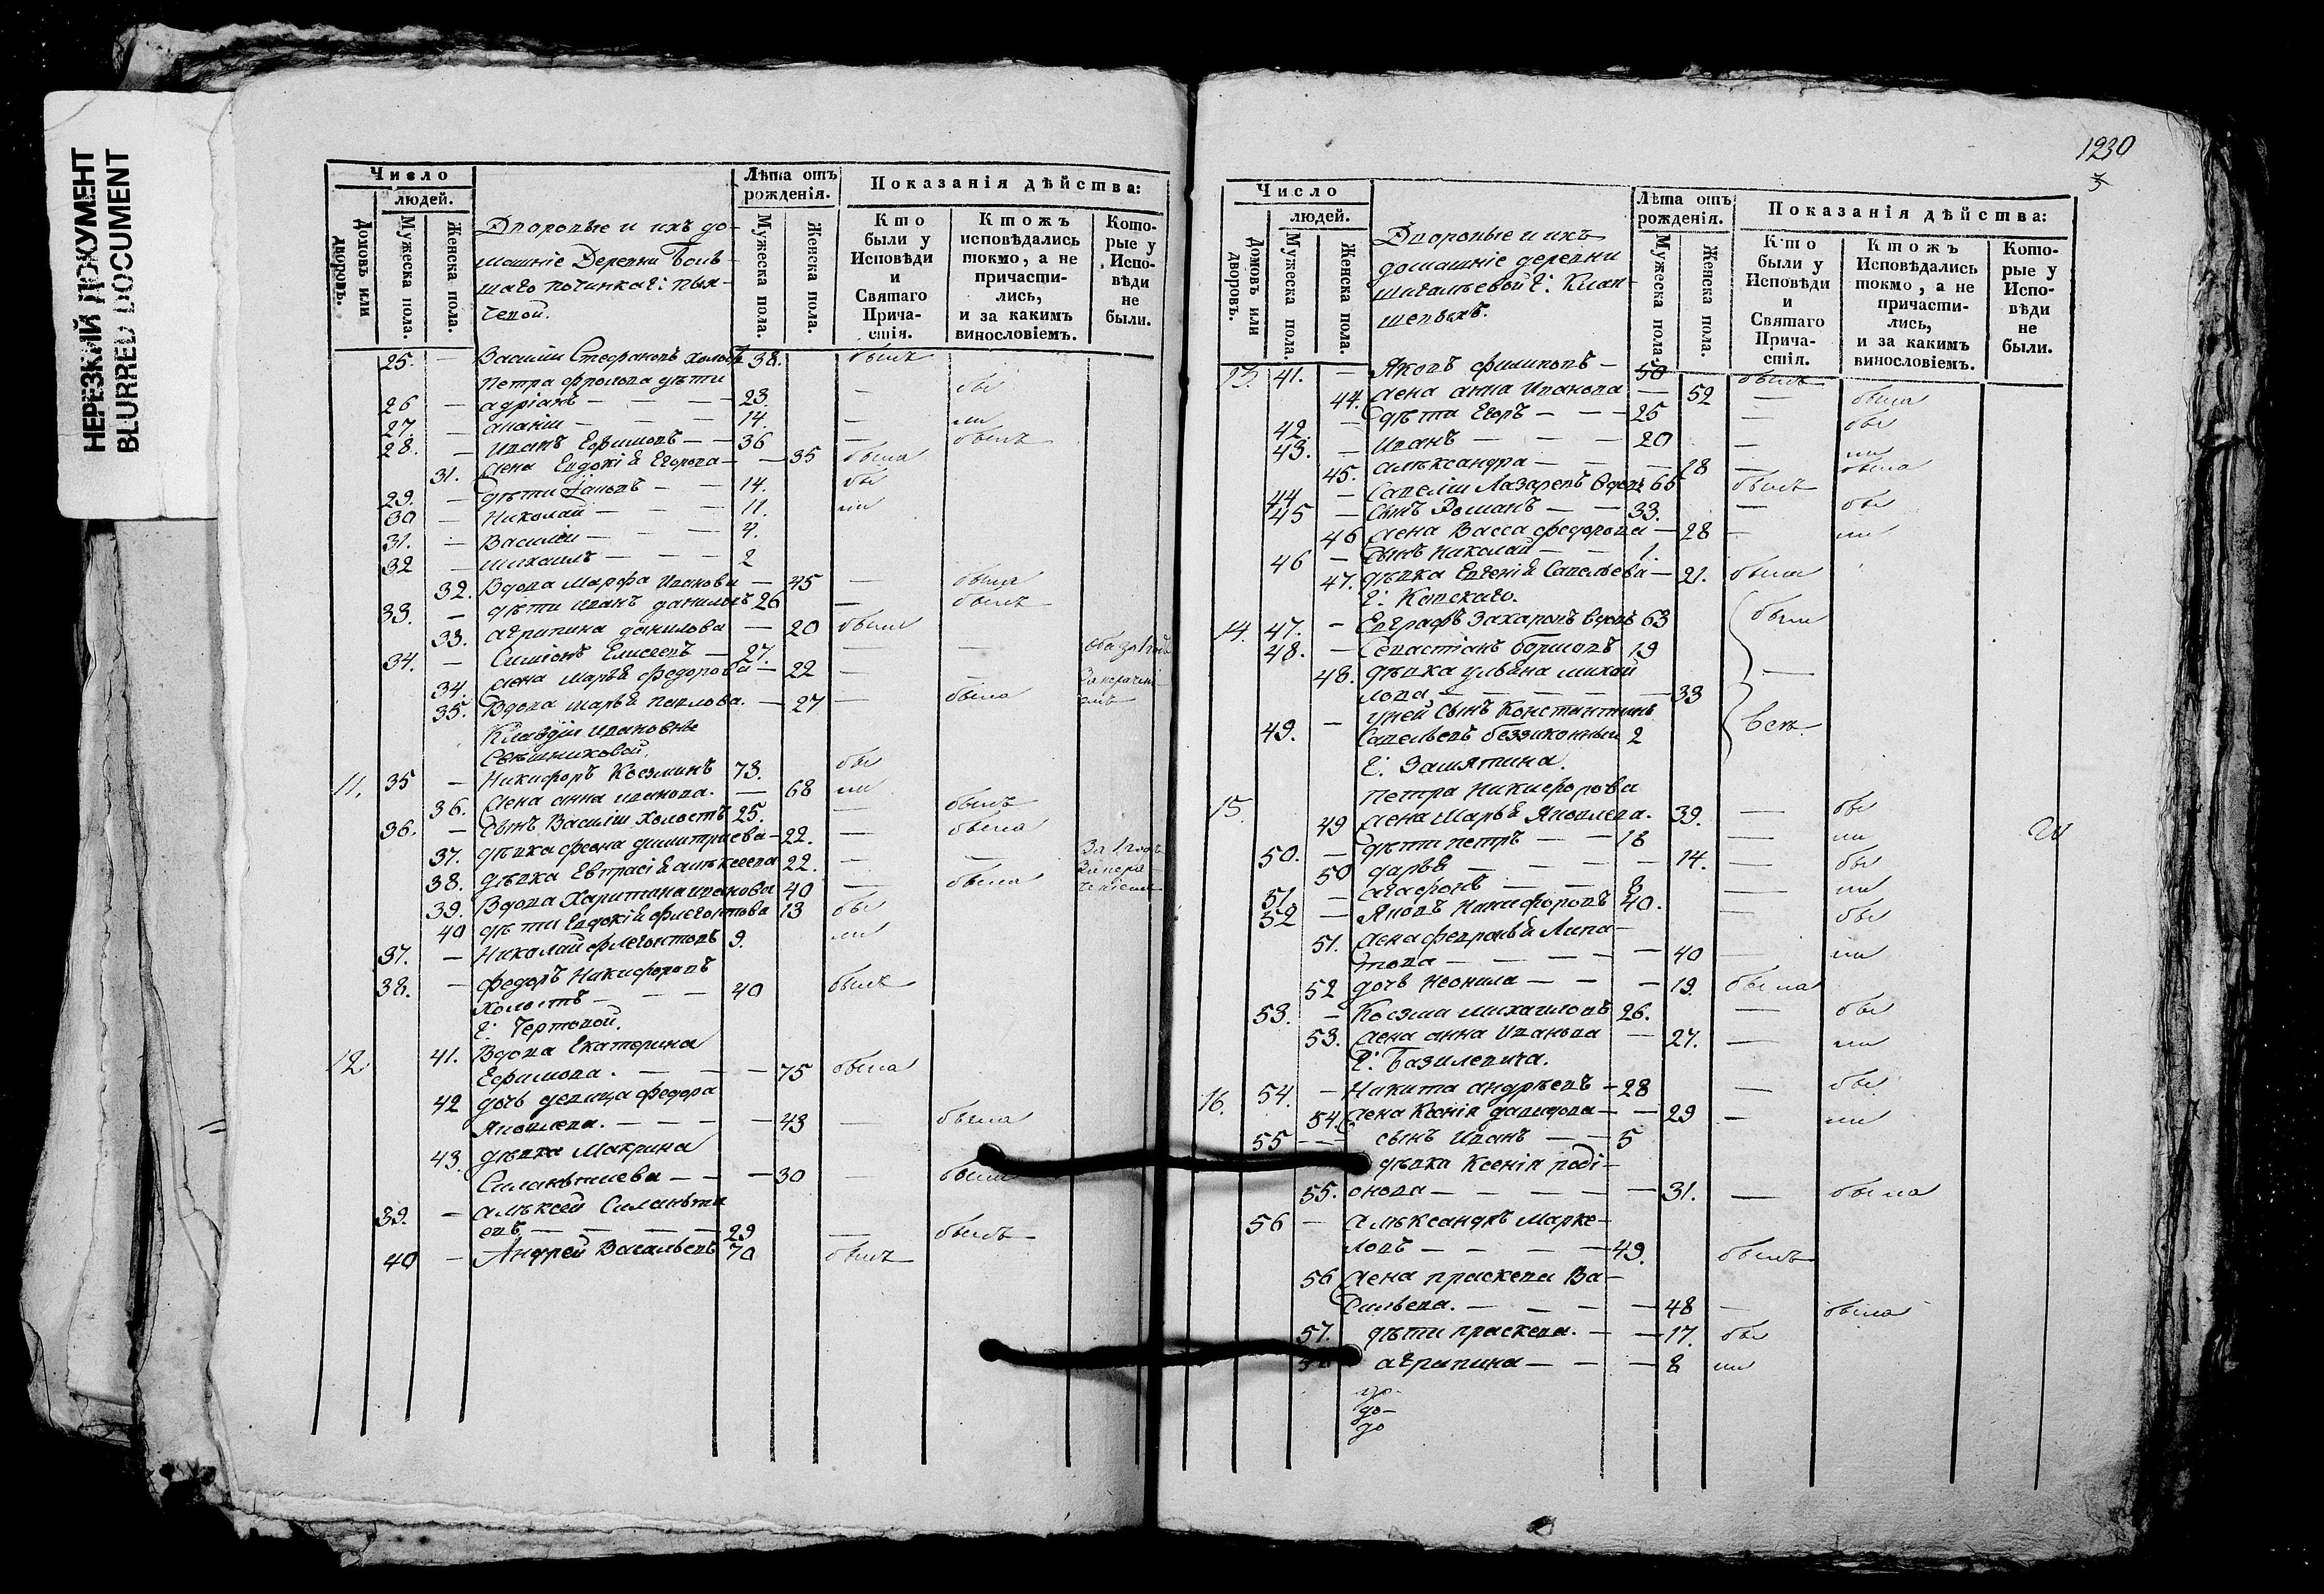 НЕРЕЗКИЙ ДОКУМЕНТ
BLURRED DOCUMENT
Число
людей.
Домовъ или дворовъ.
Мужеска пола.
Женска пола.
Дворовые и ихъ до-
машніе Деревни Боль-
шаго починка Г:
Лѣта отъ рожденія.
Мужеска пола.
Женска пола.
Показанія дѣйства:
Кто были у Исповѣди и Святаго Причастія.
Ктожъ исповѣдались токмо, а не причастились, и за какимъ винословіемъ.
Которые у Исповѣди не были.
25. — Василіи Стефановъ холостъ 38. былъ
Петра фролова дѣти
26 — адріанъ — — — 23. — бы
27. — ананіи — — — 14. — ли
28. — иванъ Ефимовъ — — 36 — былъ
31. жена Евдокіѣ Егорова — — 35 была
29. — дѣти — — 14. бы
30 — Николай — — — 11. ли
31. — Василіи — — — 4.
32 — михаилъ — — — 2
32. Вдова Марфа Иванова — 45 — была
33. — дѣти иванъ даниловъ 26 — былъ
33. агрипина данилова — 20 была
34. — Симіонъ Елисеевъ — 27. — — оба за
34. жена марьѣ федорова — 22 — —
35. Вдова марьѣ павлова. — 27 — была
Клавдіи ивановны
Свѣшниковой.
11. 35 — Никифоръ Козминъ 73. бы
36. жена анна иванова. — 68 ли
36. — сынъ Василіи холостъ 25. — былъ
37. дѣвка феона димитриева — 22. — была
38. дѣвка Евпрасіѣ алѣксеева 22. — — За 1 годъ
39. Вдова Харитана иванова 40 — была
40 дѣти Евдокіѣ флегонтова 13 бы
37. — Николай флегонтовъ 9. ли
38. — федоръ Никифоровъ
холостъ — — — 40 былъ
Г: Чертовой.
12 41. Вдова Екатерина
Ефимова. — — — 75 была
42 дочь девица федора
Яковлева. — — — — 43 — была
43. дѣвка Макрина
Силантиева — — — 30 — была
39. — алѣксей Силанти
евъ — — — — 29 — былъ
40 — Андрей Васильевъ 70 былъ
1230
3
Число
людей.
Домовъ или дворовъ.
Мужеска пола.
Женска пола.
Дворовые и ихъ
домашніе деревни
Г:
Лѣта отъ рожденія.
Мужеска пола.
Женска пола.
Показанія дѣйства:
Кто были у Исповѣди и Святаго Причастія.
Ктожъ Исповѣдались токмо, а не причастились, и за какимъ винословіемъ.
Которые у Исповѣди не были.
13 41. — Яковъ филиповъ — 50 былъ
44. жена анна Иванова — 52 — была
42. — дѣти Егоръ — — — 25 — бы
43. — иванъ — — — 20 — ли
45. алѣксандра — — — 18 — была
44 — Савеліи Лазаревъ вдовъ 65 былъ
45 — сынъ Романъ — — 33. — бы
46 жена Васса федорова — 28 — ли
46 — сынъ николай — — 1.
47. дѣвка Евгеніѣ Савельева — 21. была
14. 47. — Евграфъ Захаровъ вдовъ 63 были
48. — Севастіанъ 19
48. дѣвка ульѣна михай
лова — — — — 33 —
49. — унеи сынъ Константинъ
Савельевъ беззаконный 2
Г: Замятина.
15. Петра Никифорова
49 жена Марьѣ Яковлева. 39. — бы
50. — дѣти петръ — — 18 — ли
50 дарьѣ — — — — 14. — бы
51 — агафонъ — — 8 — ли
52 — Яковъ Никифоровъ 40. — бы
51. жена феврольѣ Липа-
това — — — — — 40 — ли
52 дочь Неонила — — — 19. была
53. — Козма михаиловъ 26. — бы
53. жена анна Иванова — 27. — ли
Г: Базилевича.
16. 54. — Никита андрѣевъ — 28 — бы
54. жена Ксенія давыдова — — 29 — ли
55 — сынъ иванъ — — 5
дѣвка Ксенія роді-
55. онова — — — — — 31. — была
56 — алѣксандръ Марке-
ловъ — — — — 49. былъ
56 жена праскева Ва-
сильева. — — — — 48 — была
57. дѣти праскева. — — 17. бы
агрипина — — — 8 ли
до-
до